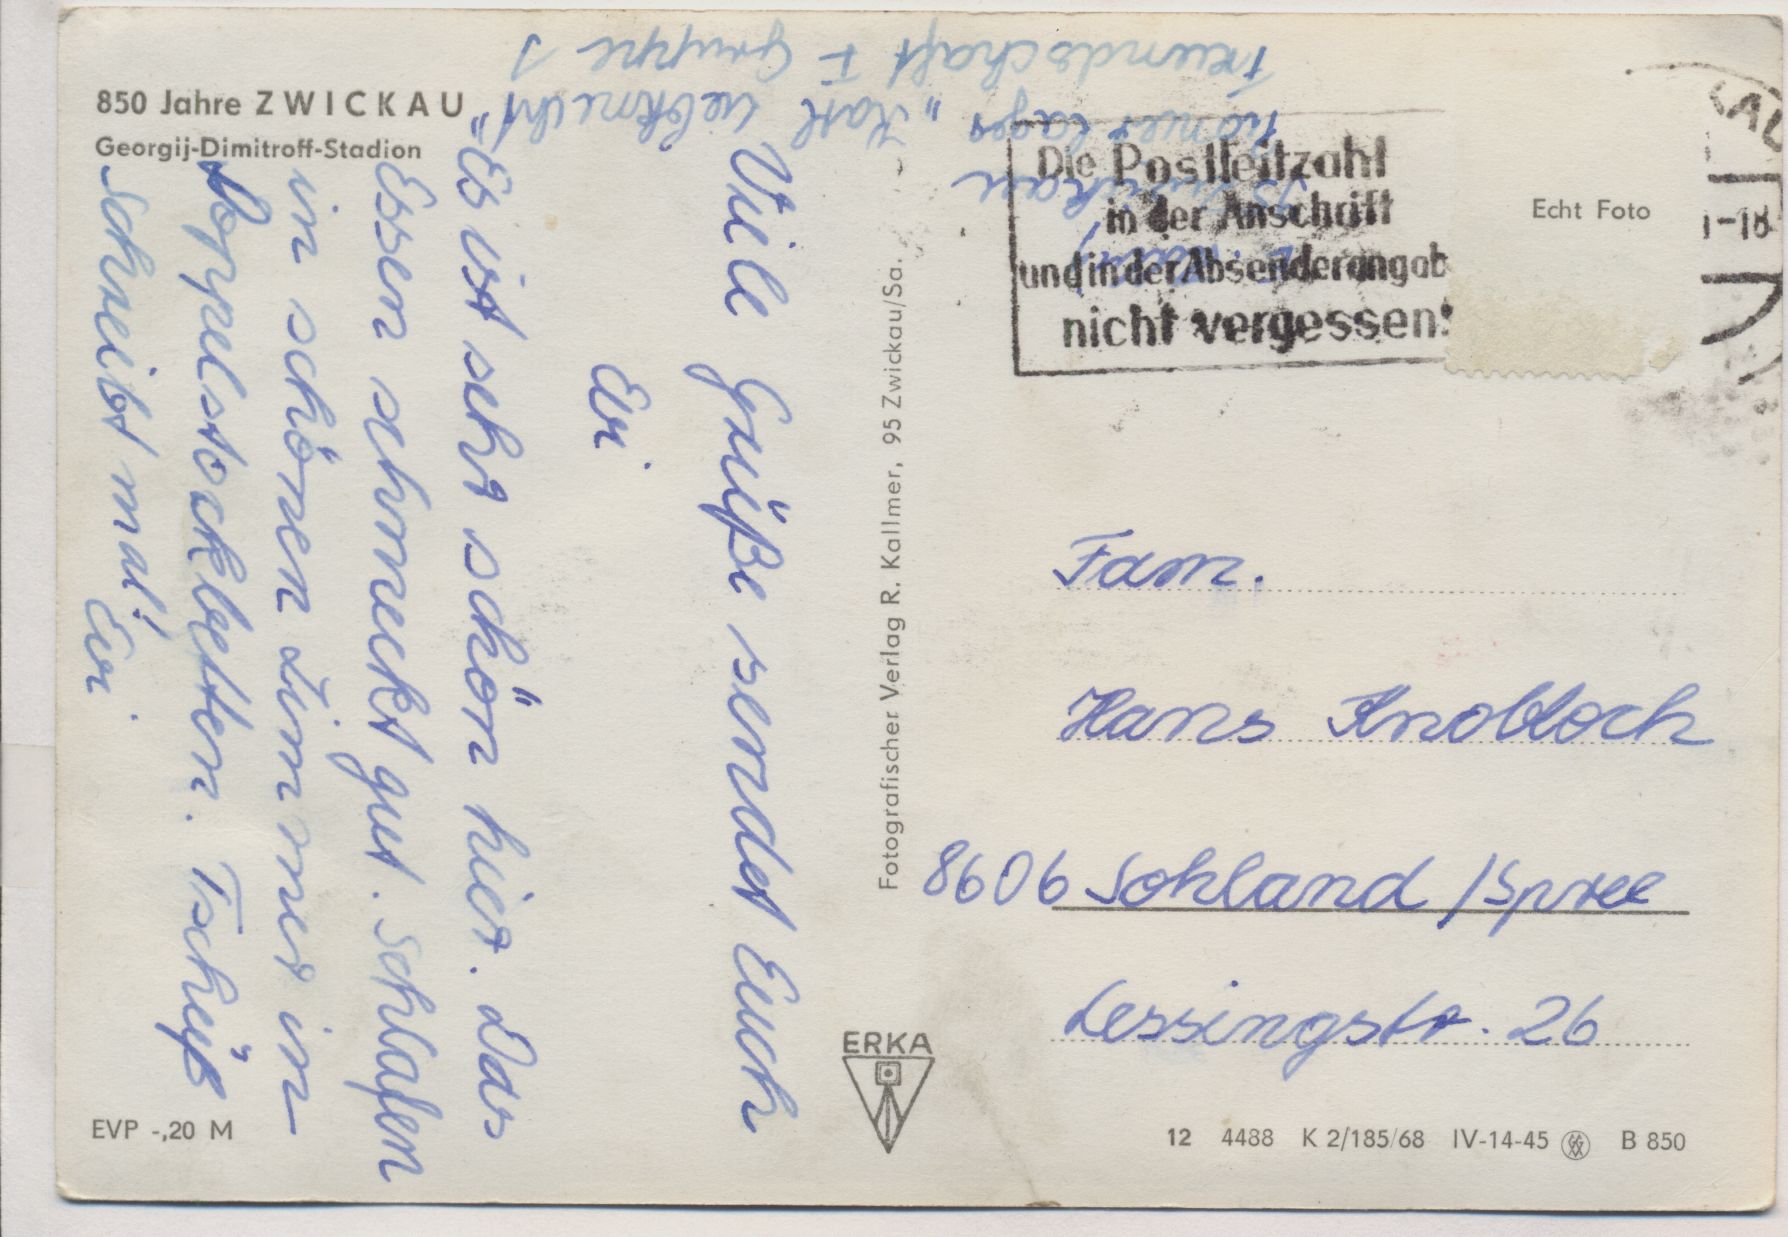 850 Jahre ZWICKAU
Georgij-Dimitroff-Stadion
Viele Grüße sendet Euch
Evi.
Es ist sehr schön hier. Das
Essen schmeckt gut. Schlafen
in schönen Zimmer in
Doppelstockbetten. Tschüß
Schreibt mal!
Evi.
"Karl Liebknecht"
Freundschaft I Gruppe 1
Fotografischer Verlag R. Kallmer, 95 Zwickau/Sa.
Die Postleitzahl
in der Anschrift
und in der Absenderangab
nicht vergessen!
Echt Foto
-18
Fam.
Hans Knobloch
8606 Sohland /Spree
Lessingstr. 26
ERKA
EVP -,20 M
12 4488 K 2/185/68 IV-14-45 B 850